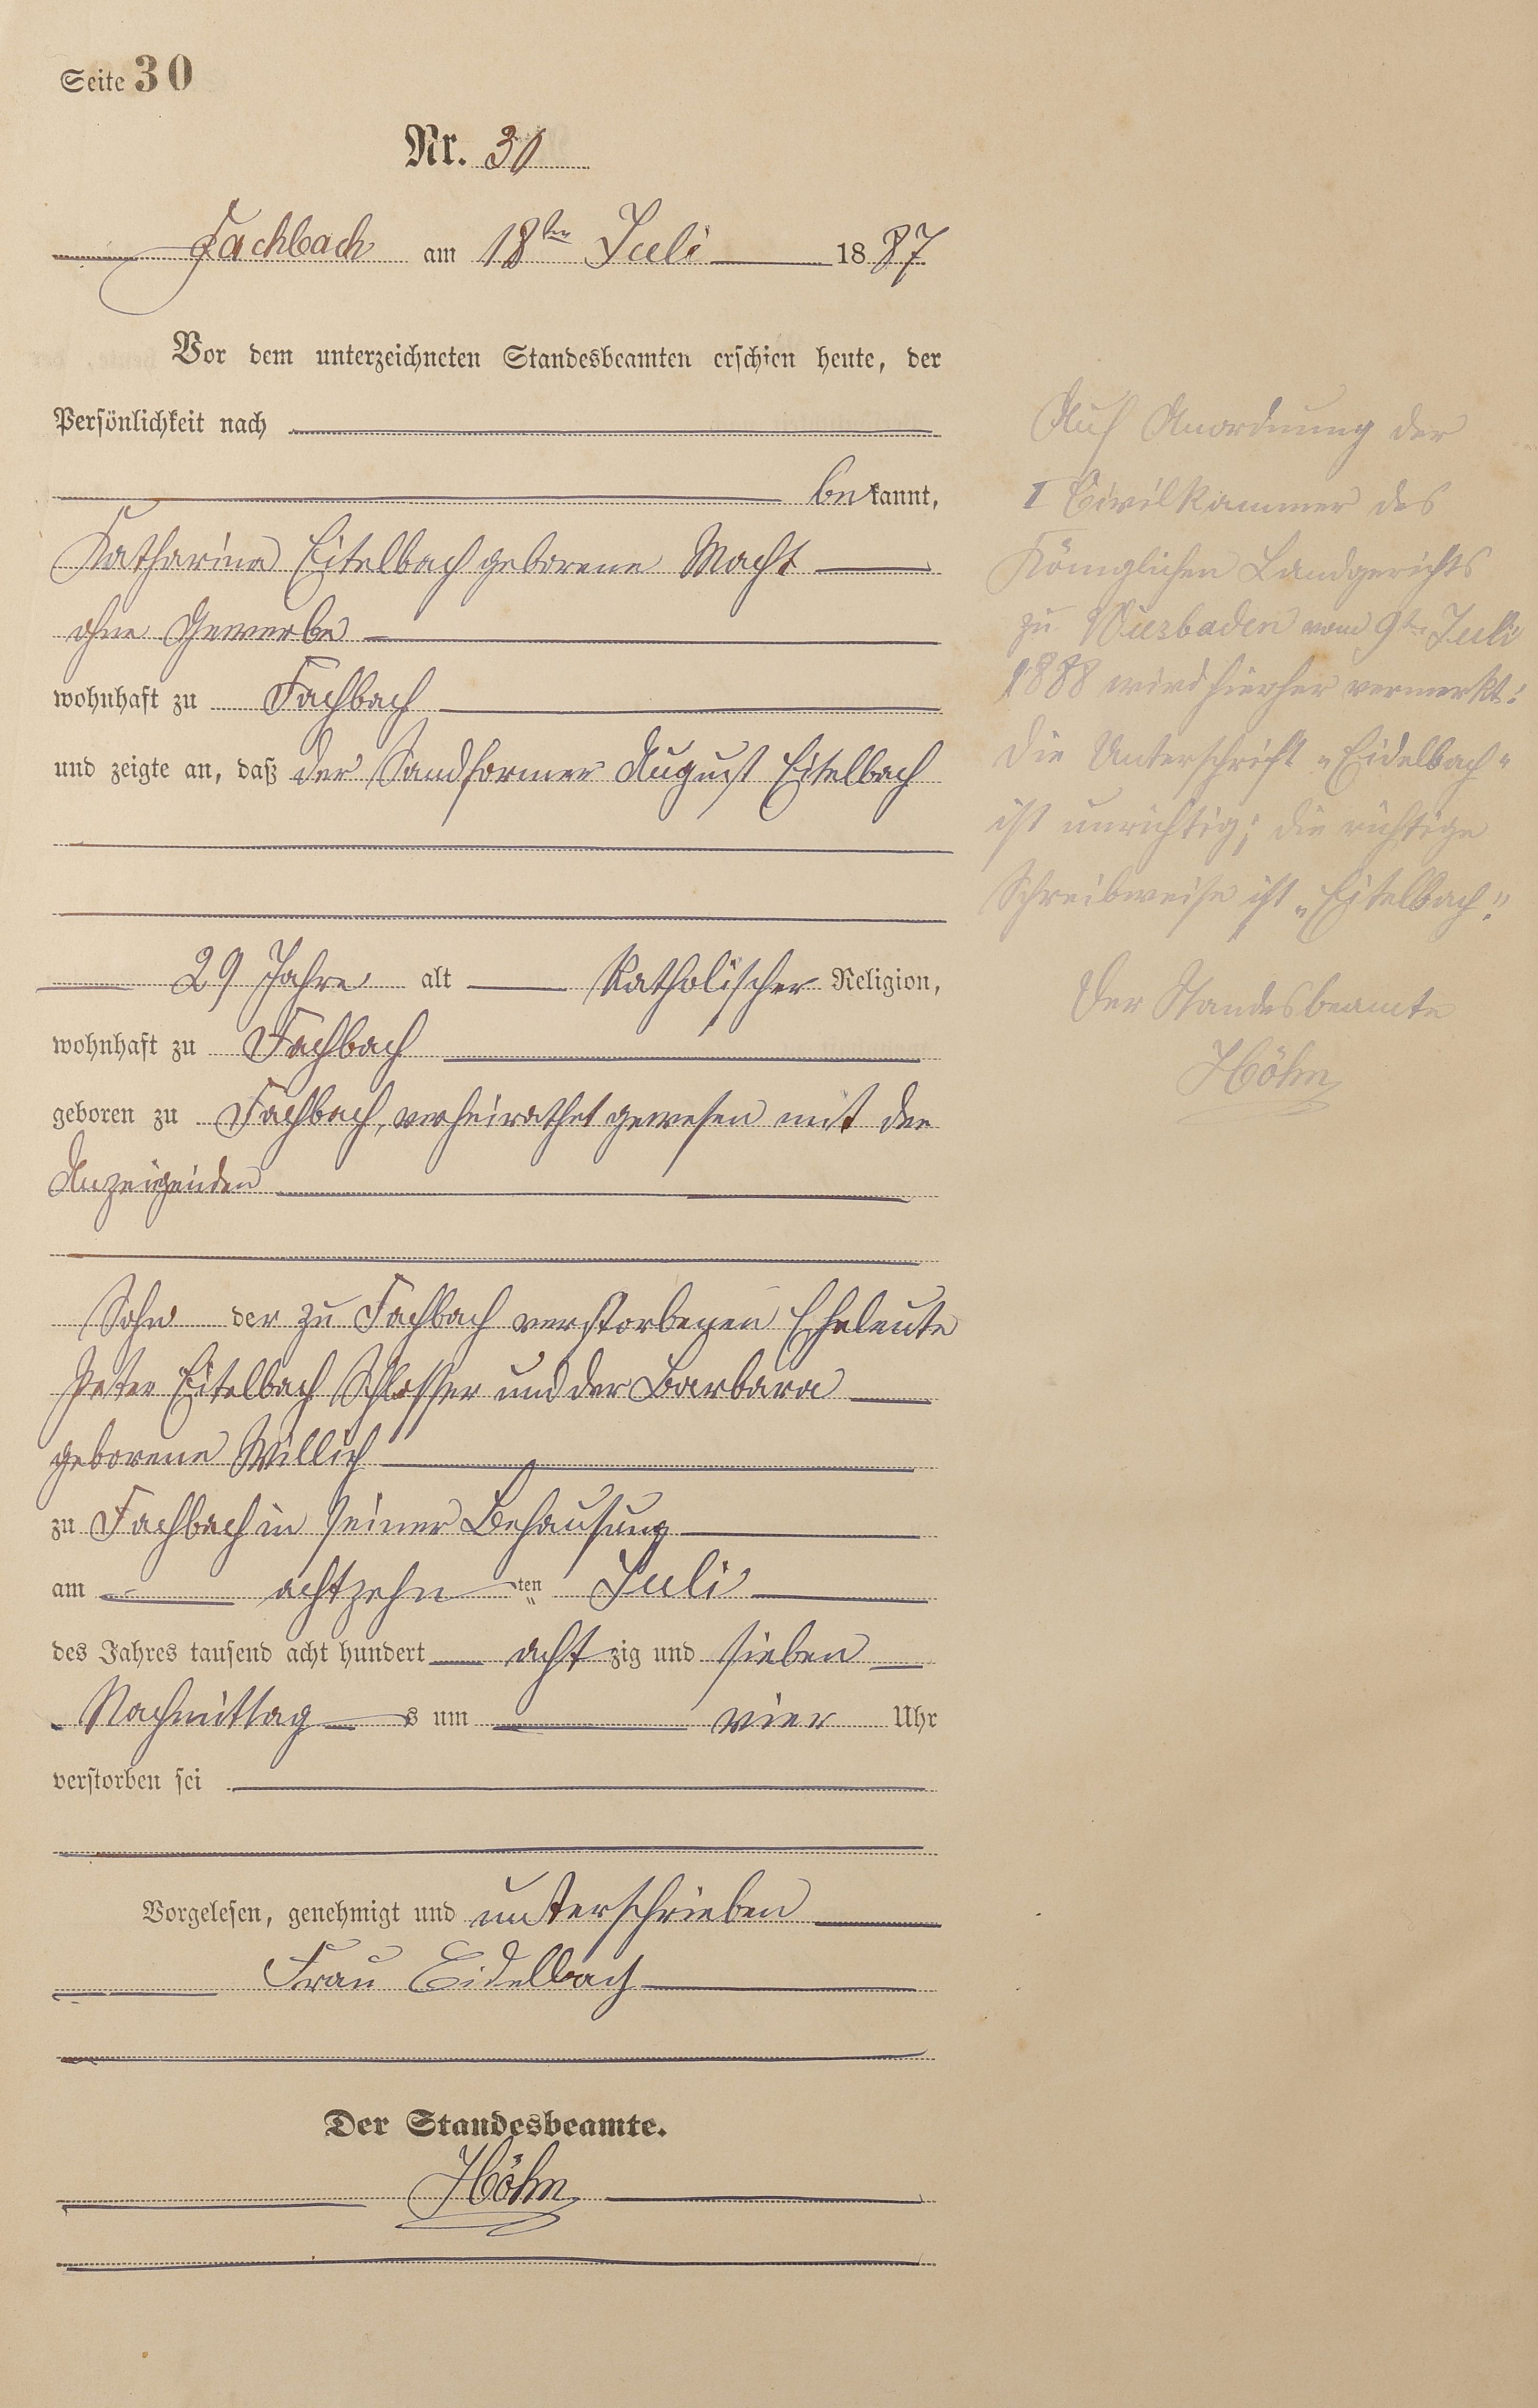 Seite 30
Nr. 30
Fachbach am 18ten Juli 1887
Vor dem unterzeichneten Standesbeamten erschien heute, der
Persönlichkeit nach
bekannt,
Katharina Eitelbach geborene Macht
ohne Gewerbe
wohnhaft zu Fachbach
und zeigte an, daß der Sandformer August Eitelbach
29 Jahre alt Katholischer Religion,
wohnhaft zu Fachbach
geboren zu Fachbach, verheirathet gewesen mit der
Anzeigenden
Sohn der zu Fachbach verstorbenen Eheleute
Peter Eitelbach Schlosser und der Barbara
geborene Willich
zu Fachbach in seiner Behausung
am achtzehnten Juli
des Jahres tausend acht hundert achtzig und sieben
Nachmittags um vier Uhr
verstorben sei
Vorgelesen, genehmigt und unterschrieben
Frau Eidelbach
Der Standesbeamte.
Höhn
Auf Anordnung der
I Civilkammer des
Königlichen Landgerichts
zu Wiesbaden vom 9ten Juli
1888 wird hierher vermerkt:
Die Unterschrift „Eidelbach"
ist unrichtig; die richtige
Schreibweise ist „Eitelbach".
Der Standesbeamte
Höhn